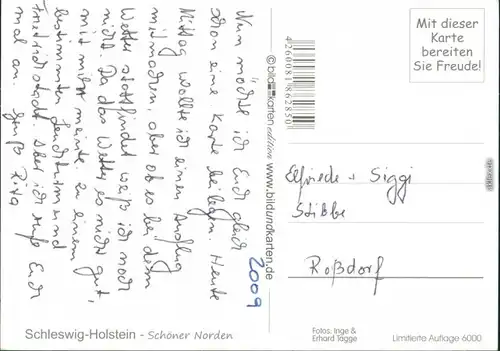 Nun möchte ich Euch gleich
schon eine Karte beilegen. Heute
Mittag wollte ich einen Ausflug
mitmachen, aber ob es bei dem
Wetter stattfindet weiß ich noch
nicht. Da das Wetter es nicht gut,
mit mir meinte. Zu einem
bestimmten Leuchtturm und
Friedrichstadt. Aber ich ruf Euch
mal an. Gruß Rita
2009
© bild karten edition www.bildundkarten.de
4260081862850
Mit dieser
Karte
bereiten
Sie Freude!
Elfriede + Siggi
Stibbe
Roßdorf
Schleswig-Holstein - Schöner Norden
Fotos: Inge &
Erhard Tagge
Limitierte Auflage 6000